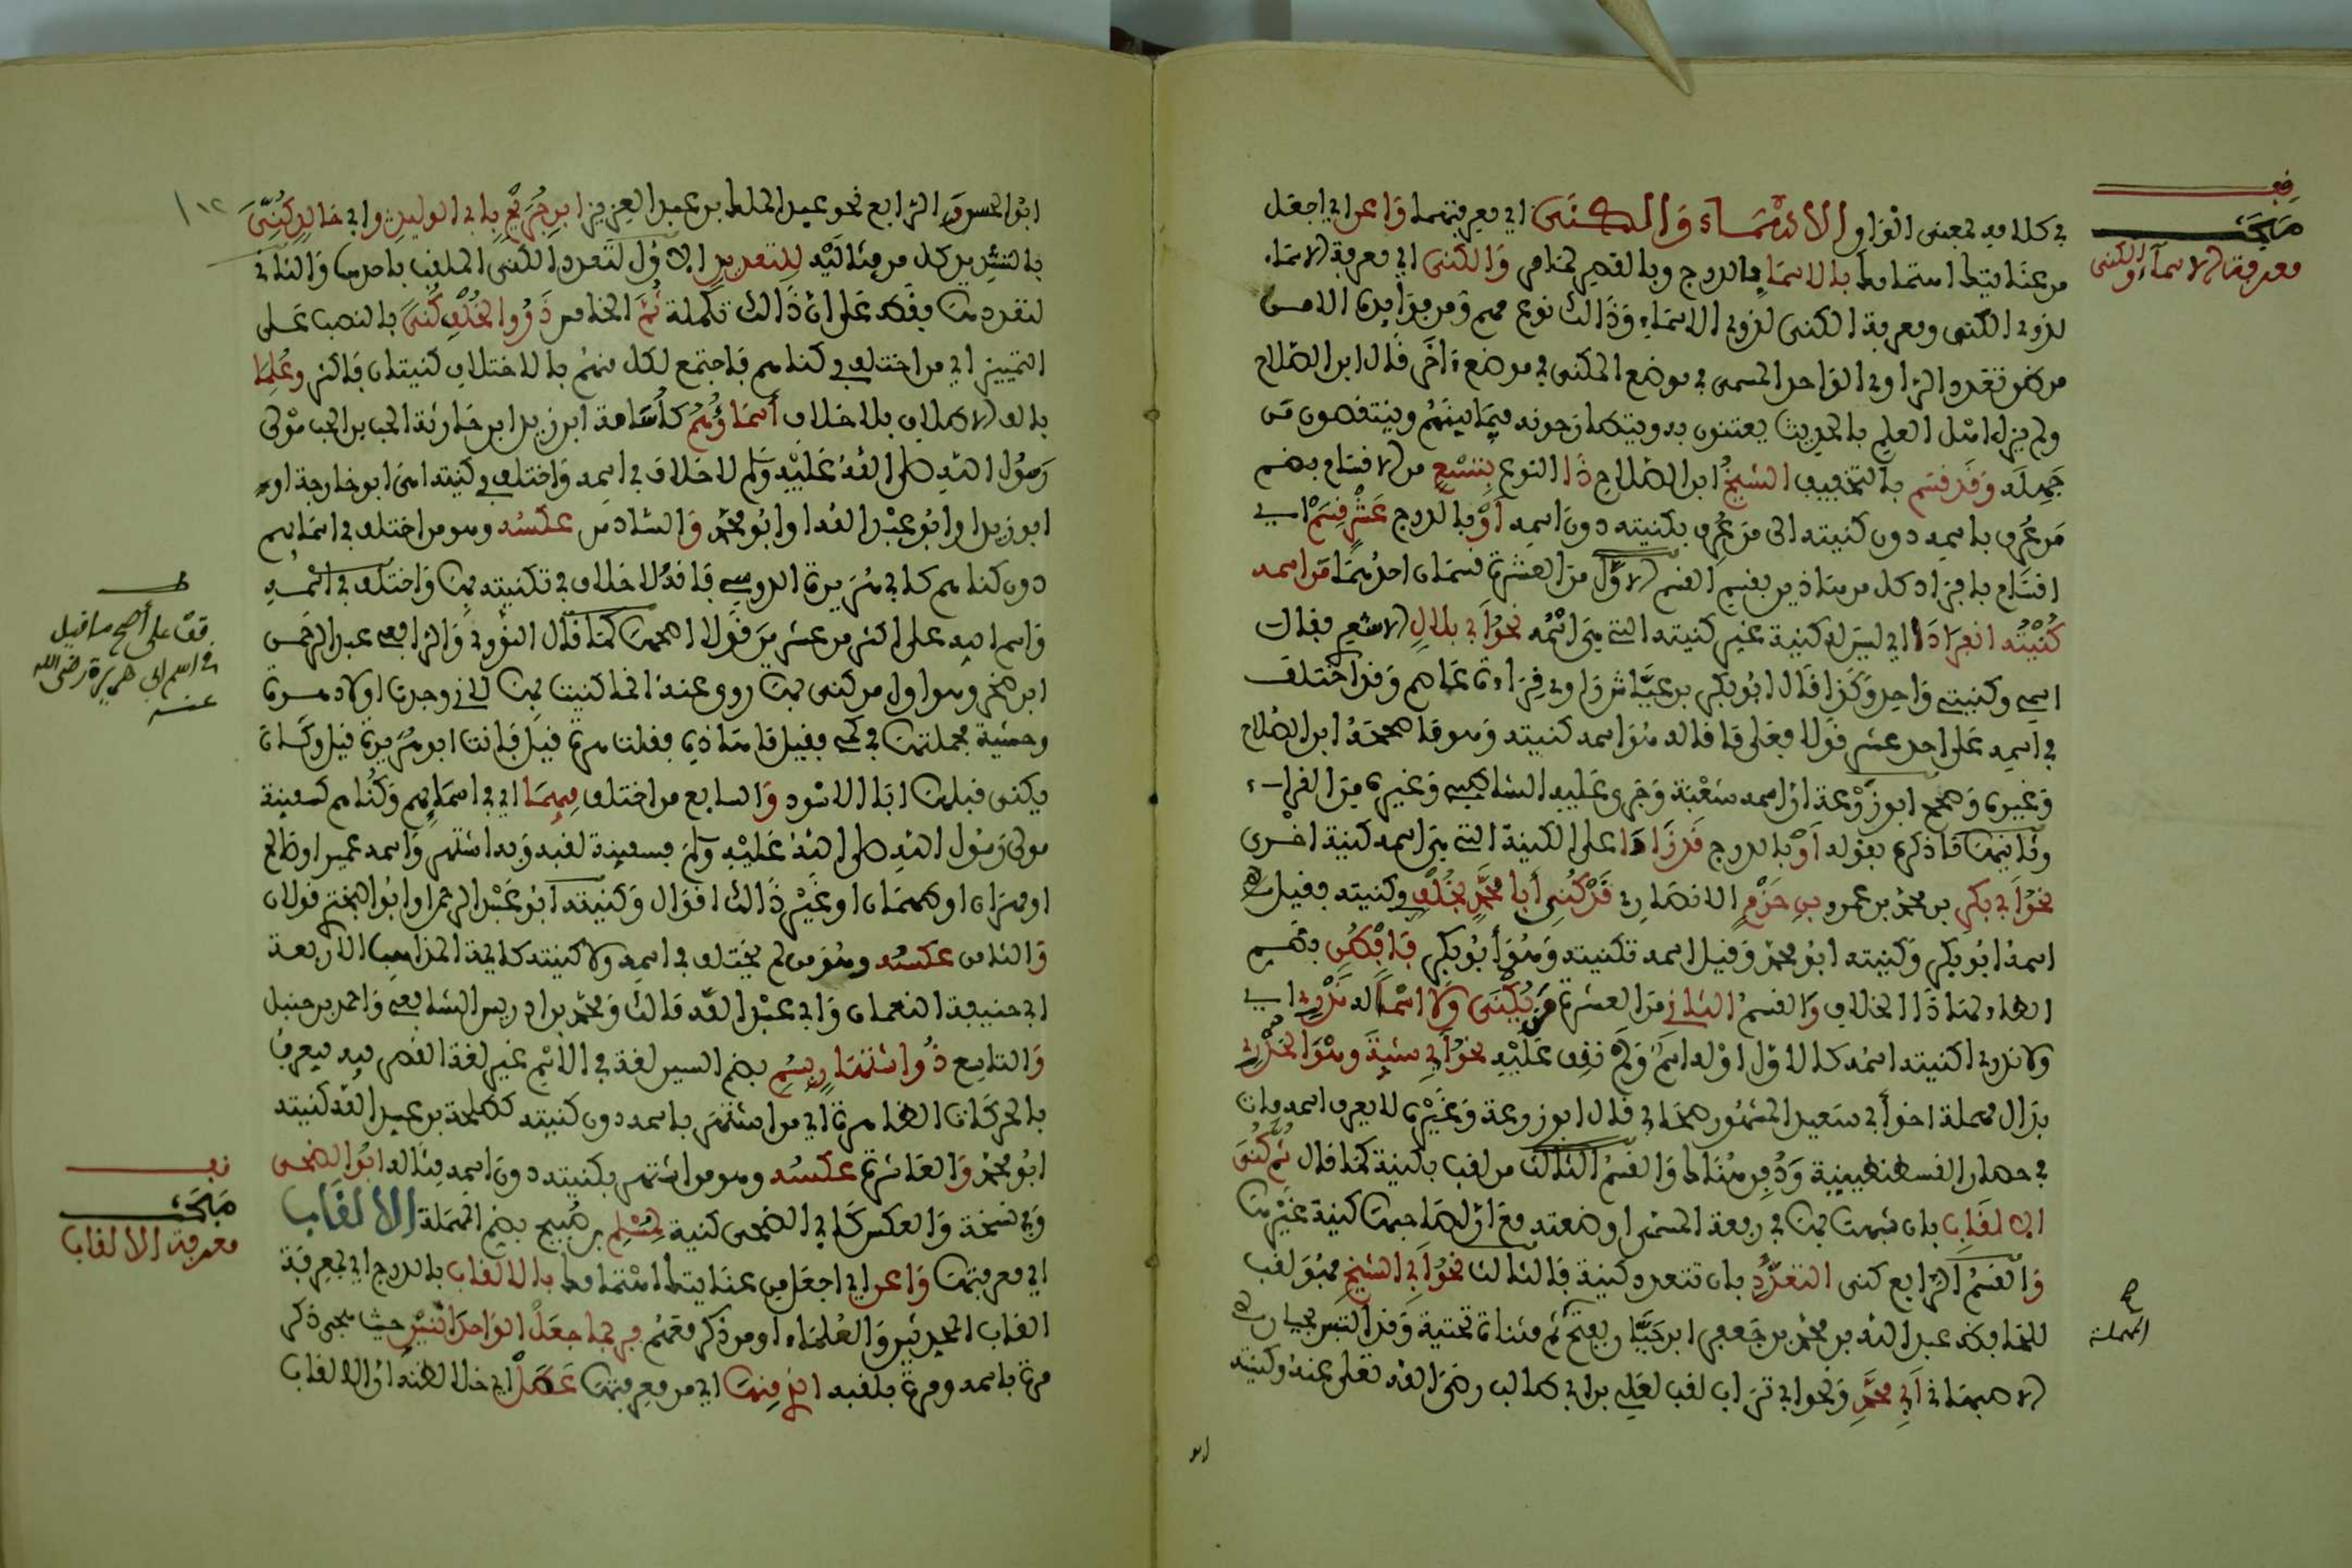 في كلامه بمعنى الواو الأسماء والكنى أي معرفتهما واعن أي اجعل
من عنايتك اهتمامك بالأسما بالدرج وبالقصر لما مر والكنى أي معرفة الاسماء
لذوي الكنى ومعرفة الكنى لذوي الاسماء وذلك نوع مهم ومن فوائده الامن
من ظن تعدد الراوي الواحد المسمى في موضع المكنى في موضع ءاخر قال ابن الصلاح
ولم يزل اهل العلم بالحديث يعتنون به ويتطارحونه فيما بينهم وينتقصون من
جهله وقد قسم بالتخفيف الشيخ ابن الصلاح ذا النوع بتسع من الاقسام بضم
من عرف باسمه دون كنيته الى من عرف بكنيته دون اسمه أو بالدرج عشر قسم أي
اقسام بافراد كل من هاذين بقسم القسم الاول من العشرة قسمان احدهما من اسمه
كنيته انفرادا أي ليس له كنية غير كنيته التي هي اسمه نحو أبي بلال الاشعري فقال
اسمي وكنيتي واحد وكذا قال ابو بكر بن عياش راوي قراءة عاصم وقد اختلف
في اسمه على احد عشر قولا فعلى ما قاله هو اسمه كنيته وهو ما صححه ابن الصلاح
وغيره وصحح ابو زرعة ان اسمه شعبة وجرى عليه الشاطبي وغيره من القراء
وثانيهما ما ذكره بقوله أو بالدرج قد زادا على الكنية التي هي اسمه كنية اخرى
نحو أبي بكر بن محمد بن عمرو بن حزم الانصاري قد كني أبا محمد بخلف وكنيته فقيل
اسمه ابو بكر وكنيته ابو محمد وقيل اسمه كنيته وهو أبو بكر فافطن بضم
الطاء لهاذا الخلاف والقسم الثاني من العشرة من يكنى ولا اسما له ندري أي
ولا ندري اكنيته اسمه كالاول أو له اسم ولم نقف عليه نحو أبي شيبة وهو الخدري
بدال مهملة اخو أبي سعيد المشهور صحابي قال ابو زرعة وغيره لا يعرف اسمه مات
في حصار القسطنطينية ودفن هناك والقسم الثالث من لقب بكنية كما قال ثم كنى
الالقاب بان شبهت بها في رفعة المسمى أو ضعته مع ان لصاحبها كنية غيرها
والقسم الرابع كنى التعدد بان تتعدد كنية فالثالث نحو أبي الشيخ فهو لقب
للحافظ عبد الله بن محمد بن جعفر ابن حيان بفتح ثم مثناة تحتية وقد التبس بحيان
الاصبهاني أبي محمد ونحو ابي تراب لقب لعلي بن ابي طالب رضي الله تعلى عنه وكنيته
ابو
قف
مبحث
معرفة الاسماء والكنى
المهملة
١٠٢
ابو الحسن والرابع نحو عبد الملك بن عبد العزيز ابن جريج بابي الوليد وابي خالد كني
بالتشديد كل من مثاليه للتعديد الاول لتعدد الكنى الملقب باحدها والثاني
لتعددها فقط على ان ذالك تكملة ثم الخامس ذوو الخلف كنى بالنصب على
التمييز أي من اختلف في كناهم فاجتمع لكل منهم بالاختلاف كنيتان فاكثر وعلما
بالف الاطلاق بلا خلاف أسماؤهم كأسامة ابن زيد ابن حارثة الحب بن الحب مولى
رسول الله صلى الله عليه وسلم لا خلاف في اسمه واختلف في كنيته اهي ابو خارجة او
ابو زيد او ابو عبد الله او ابو محمد والسادس عكسه وهو من اختلف في اسمائهم
دون كناهم كأبي هريرة الدوسي فانه لا خلاف في تكنيته بها واختلف في اسمه
واسم ابيه على اكثر من عشرين قولا اصحها كما قال النووي والرافعي عبد الرحمن
ابن صخر وهو اول من كني بها روي عنه انما كنيت بها لاني وجدت اولاد هرة
وحشية فحملتها في كمي فقيل ما هاذه فقلت هرة قيل فانت ابو هريرة قيل وكان
يكنى قبلها ابا الاسود والسابع من اختلف فيهما أي في اسمائهم وكناهم كسفينة
مولى رسول الله صلى الله عليه وسلم فسفينة لقبه وبه اشتهر واسمه عمير او صالح
او مهران او طهمان او غير ذالك اقوال وكنيته ابو عبد الرحمن او ابو البختري قولان
والثامن عكسه وهو من لم يختلف في اسمه ولا كنيته كائمة المذاهب الاربعة
ابي حنيفة النعمان وابي عبد الله مالك ومحمد بن ادريس الشافعي واحمد بن حنبل
والتاسع ذو اشتهار بسم بضم السين لغة في الاسم غير لغة القصر فيه فيعرف
بالحركات الظاهرة أي من اشتهر باسمه دون كنيته كطلحة بن عبيد الله كنيته
ابو محمد والعاشرة عكسه وهو من اشتهر بكنيته دون اسمه مثاله ابو الضحى
وفي نسخة والعكس كأبي الضحى كنية لمسلم بن صبيح بضم المهملة الالقاب
أي معرفتها واعن أي اجعل من عنايتك اهتمامك بالالقاب بالدرج أي بمعرفة
القاب المحدثين والعلماء ومن ذكر معهم فربما جعل الواحد اثنين حيث يجيء ذكر
مرة باسمه ومرة بلقبه الذ منها أي من معرفتها عطل أي خلا لظنه ان الالقاب
ط
قف على أصح ما قيل
في اسم ابي هريرة رضي الله
عنه
قف
مبحث
معرفة الالقاب